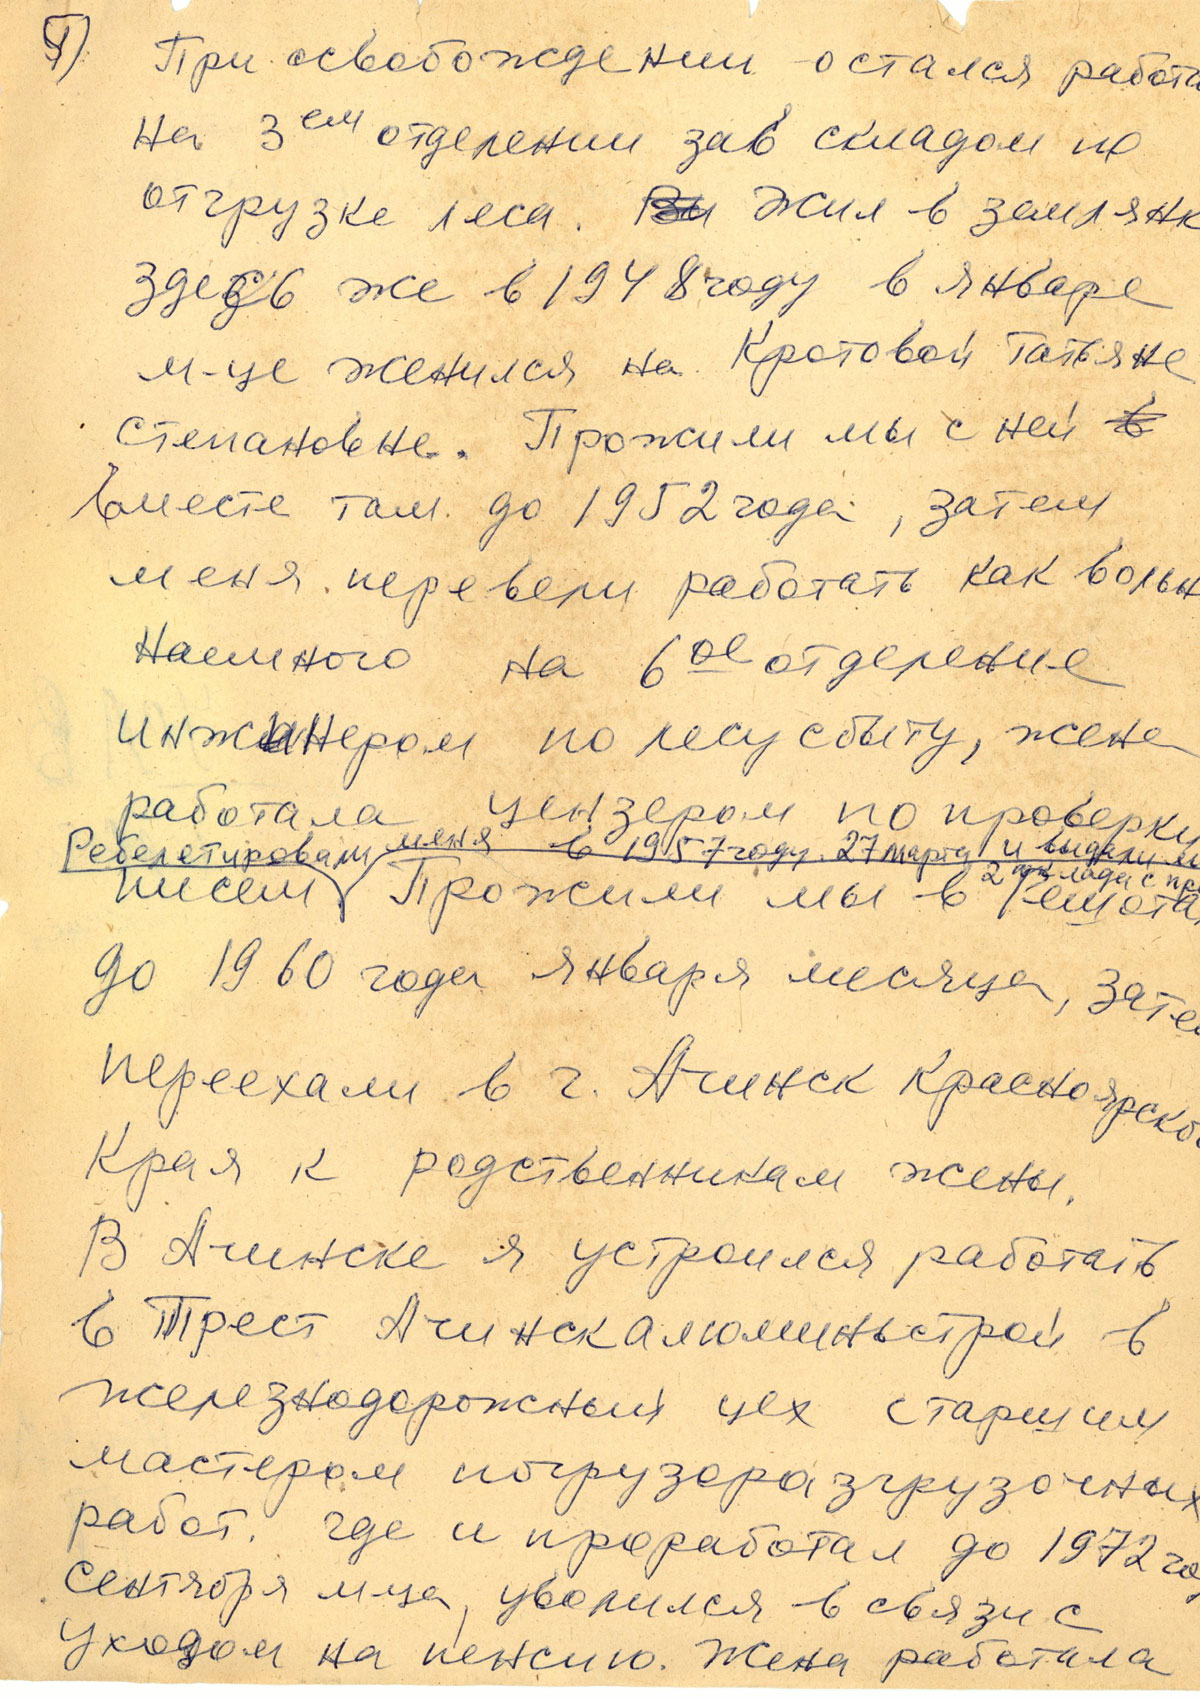 9)
При освобождении остался работа
на 3ем отделении зав складом по
отгрузке леса. Жил в землянк
здесь же в 1948 году в январе
м-це женился на Кротовой Татьяне
степановне. Прожили мы с ней в
вместе там до 1952 года, затем
меня перевели работать как вольн
наемного на 6ое отделение
инжинером по лесу сбыту, жена
работала цензером по проверки
Ребелетировали меня в 1957 году 27 марта и выдали м
2 оклада с пр
писем Прожили мы в Решота
до 1960 года января месяца, зате
переехали в г. Ачинск Красноярског
Края к родственникам жены.
В Ачинске я устроился работать
в Трест Ачинскалюминьстрой в
железнодорожный цех старшим
мастером погрузоразгрузочных
работ. где и проработал до 1972 го
сентября м-ца, уволился в связи с
уходом на пенсию. Жена работала